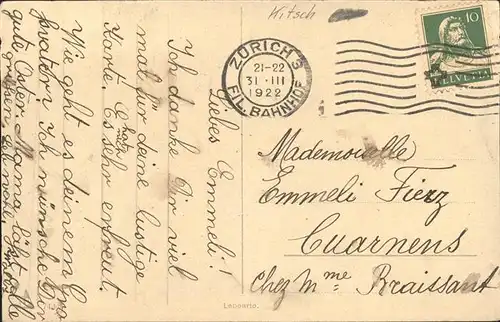 Kitsch
ZÜRICH 3
21-22
31·III
1922
FIL. BAHNHOF
10
HELVETIA
Liebes Emmeli!
Ich danke Dir viel
mal für deine lustige
Karte. Es sehr erfreut.
Wie geht es deinem Gro
svater? ich wünsche Dir
gute Ostern. Mama lässt
grüssen. Blanche.
Mademoiselle
Emmeli Fierz
Cuarnens
Chez Mme Braissant